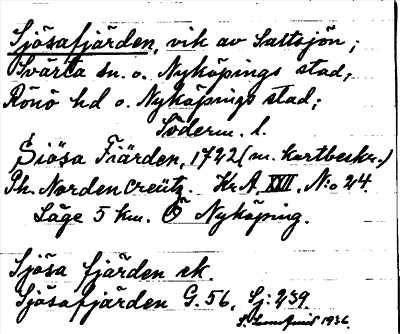 Sjösafjärden, vik av Saltsjön;
Svärta sn. o. Nyköpings stad,
Rönö hd o. Nyköpings stad;
Söderm. l.
Siösa Fiärden, 1722 (m. kartbeskr.)
Ph. Nordencreütz. Kr. A. XVII. N:o 24.
Läge 5 km. Ö Nyköping.
Sjösa fjärden ek.
Sjösafjärden G. 56, Sj: 239.
S. Lundqvist 1936